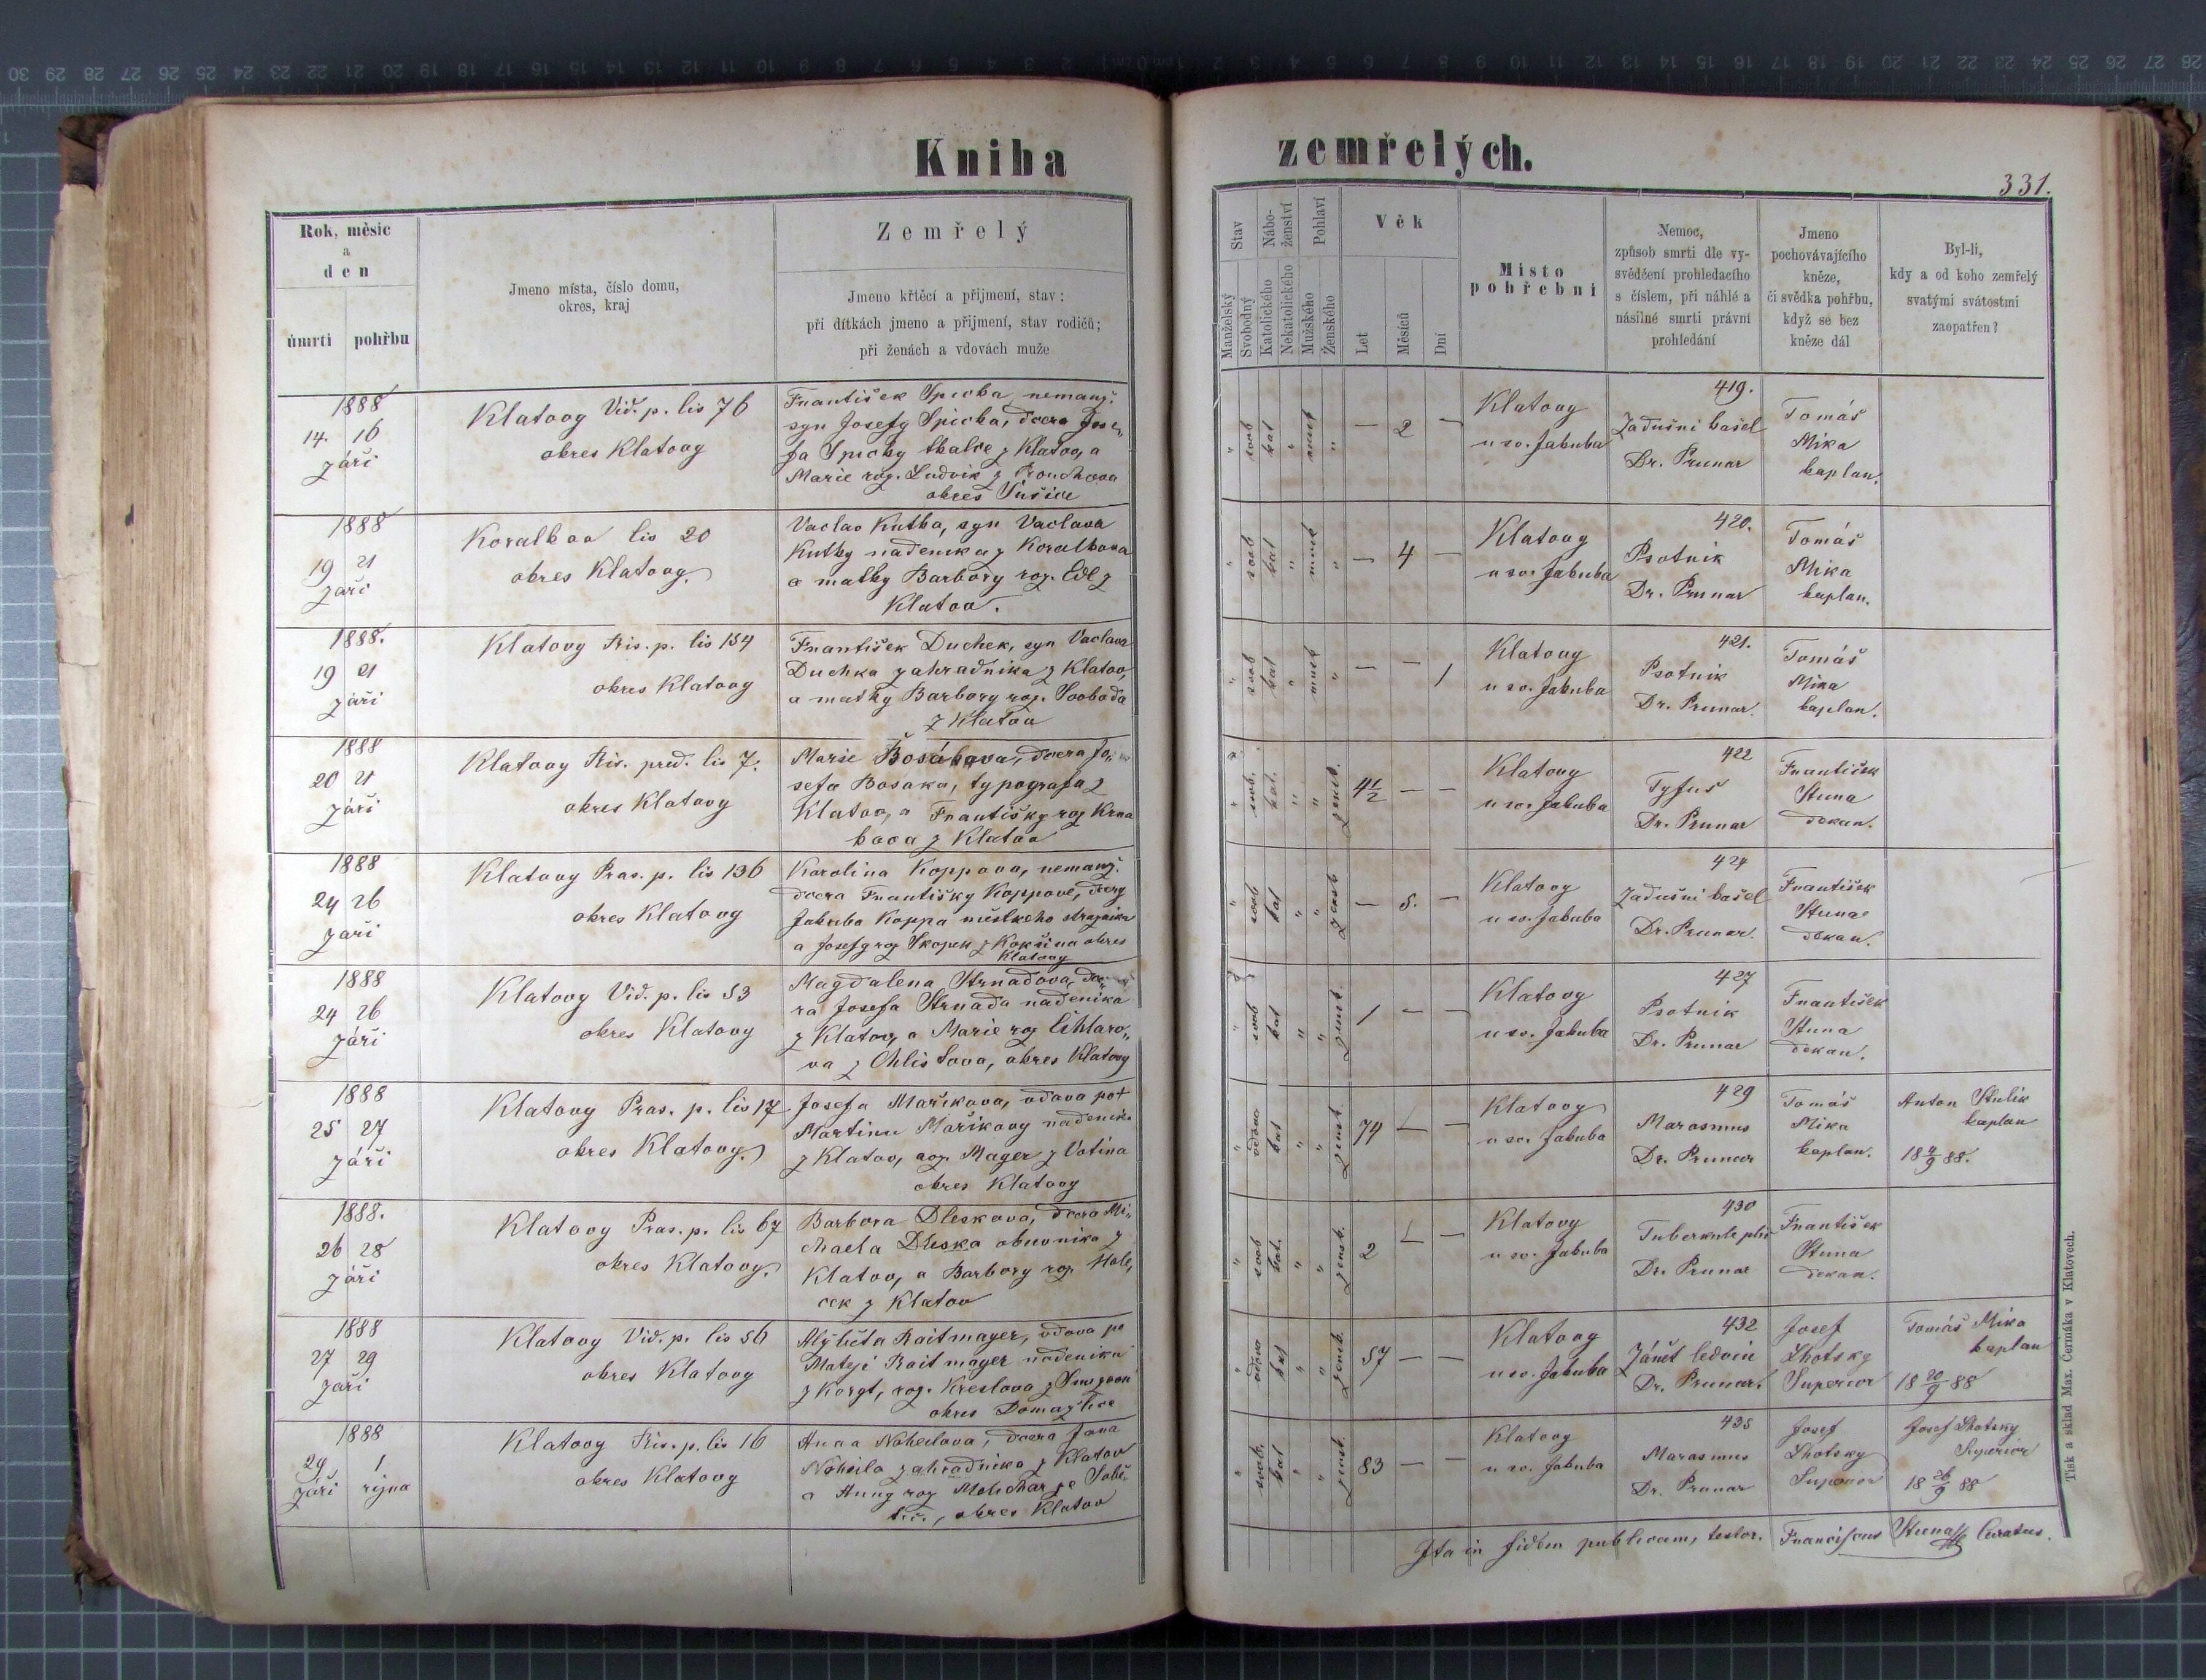 Kniha zemřelých.
331.
Rok, měsíc
a
den
úmrtí pohřbu
Jmeno místa, číslo domu,
okres, kraj
Zemřelý
Jmeno křtěcí a přijmení, stav:
při dítkách jmeno a přijmení, stav rodičů;
při ženách a vdovách muže
Stav
Manželský
Svobodný
Nábo-
ženství
Katolického
Nekatolického
Pohlaví
Mužského
Ženského
Věk
Let
Měsíců
Dní
Místo
pohřební
Nemoc,
způsob smrti dle vy-
svědčení prohledacího
s číslem, při náhlé a
násilné smrti právní
prohledání
Jmeno
pochovávajícího
kněze,
či svědka pohřbu,
když se bez
kněze dál
Byl-li,
kdy a od koho zemřelý
svatými svátostmi
zaopatřen?
1888
14. 16
září
Klatovy Vid. p. čis 76
okres Klatovy
František Spicka, nemanž.
syn Josefy Spicka, dcera Jose„
fa Spicky tkalce z Klatov, a
Marie roz. Ludvik z
okres Sušice
svob kat " mužs "
— 2 —
Klatovy
u sv. Jakuba
419.
Zadušni kašel
Dr. Prunar
Tomáš
Mika
kaplan.
1888
19 21
září
Koralkov čis 20
okres Klatovy.
Vaclav Kutka, syn Vaclava
Kutky nadenika z Koralkova
a matky Barbory roz. Edl z
Klatov.
svob kat " mužs "
— 4 —
Klatovy
u sv. Jakuba
420.
Psotnik
Dr. Prunar
Tomáš
Mika
kaplan.
1888.
19 21
září
Klatovy Ris. p. čis 154
okres Klatovy
František Duchek, syn Vaclava
Duchka zahradnika z Klatov,
a matky Barbory roz. Svoboda
z Klatov
svob kat " mužs "
— — 1
Klatovy
u sv. Jakuba
421.
Psotnik
Dr. Prunar.
Tomáš
Mika
kaplan.
1888
20 21
září
Klatovy Ris. pred. čis 7.
okres Klatovy
Marie Bosákova, dcera Jo„
sefa Bosaka, typografa z
Klatov, a Františky roz Krna
kova z Klatov
svob. kat. " " žensk.
4½ — —
Klatovy
u sv. Jakuba
422
Tyfus
Dr. Prunar
František
Stuna
děkan.
1888
24 26
září
Klatovy Pras. p. čis 136
okres Klatovy
Karolina Koppova, nemanž.
dcera Františky Koppové, dcery
Jakuba Koppa městkeho strajnika
a Josefy roz Skopek z Kokšina okres
Klatovy
svob kat " " žensk
— 5. —
Klatovy
u sv. Jakuba
424
Zadušni kašel
Dr. Prunar.
František
Stuna
děkan.
1888
24 26
září
Klatovy Vid. p. čis 53
okres Klatovy
Magdalena Strnadova, dce„
ra Josefa Strnada nadenika
z Klatov, a Marie roz Cihlaro„
va z Chlistova, okres Klatovy
svob kat " " žensk.
1 — —
Klatovy
u sv. Jakuba
427
Psotnik
Dr. Prunar
František
Stuna
děkan.
1888
25 27
září
Klatovy Pras. p. čis 17
okres Klatovy.
Josefa Mařikova, vdova po †
Martinu Mařikovy nadenik
z Klatov, roz. Mayer z Votina
okres Klatovy
vdova kat " " žensk.
74 — —
Klatovy
u sv. Jakuba
429
Marasmus
Dr. Prunar
Tomáš
Mika
kaplan.
Anton Stulik
kaplan
18 88.
1888.
26 28
září
Klatovy Pras. p. čis 67
okres Klatovy.
Barbora Dleskova, dcera Mi„
chaela Dleska obuvnika z
Klatov, a Barbory roz. Hole„
cek z Klatov
svob kat. " " žensk.
2 — —
Klatovy
u sv. Jakuba
430
Tuberkule plic
Dr. Prunar
František
Stuna
děkan.
1888
27 29
září
Klatovy Vid. p. čis 56
okres Klatovy
Alžběta Raitmayer, vdova po
Mateji Raitmayer nadenika
z Koryt, roz. Kreslova z
okres Domažlice
vdova kat " " žensk.
57 — —
Klatovy
u sv. Jakuba
432
Zánět ledvin
Dr. Prunar.
Josef
Lhotsky
Superior
Tomáš Mika
kaplan
18 20/9 88
1888
29 1
září října
Klatovy Ris. p. čis 16
okres Klatovy
Anna Nohejlova, dcera Jana
Nohejla zahradnika z Klatov
a Anny roz Melichar ze Sobě„
tic, okres Klatov
svob. kat " " žensk.
83 — —
Klatovy
u sv. Jakuba
435
Marasmus
Dr. Prunar
Josef
Lhotsky
Superior
Josef Lhotsky
Superior
18 26/9 88
Ita in fidem publicam, testor. Franciscus Stuna Curatus.
Tisk a sklad Max. Čermáka v Klatovech.